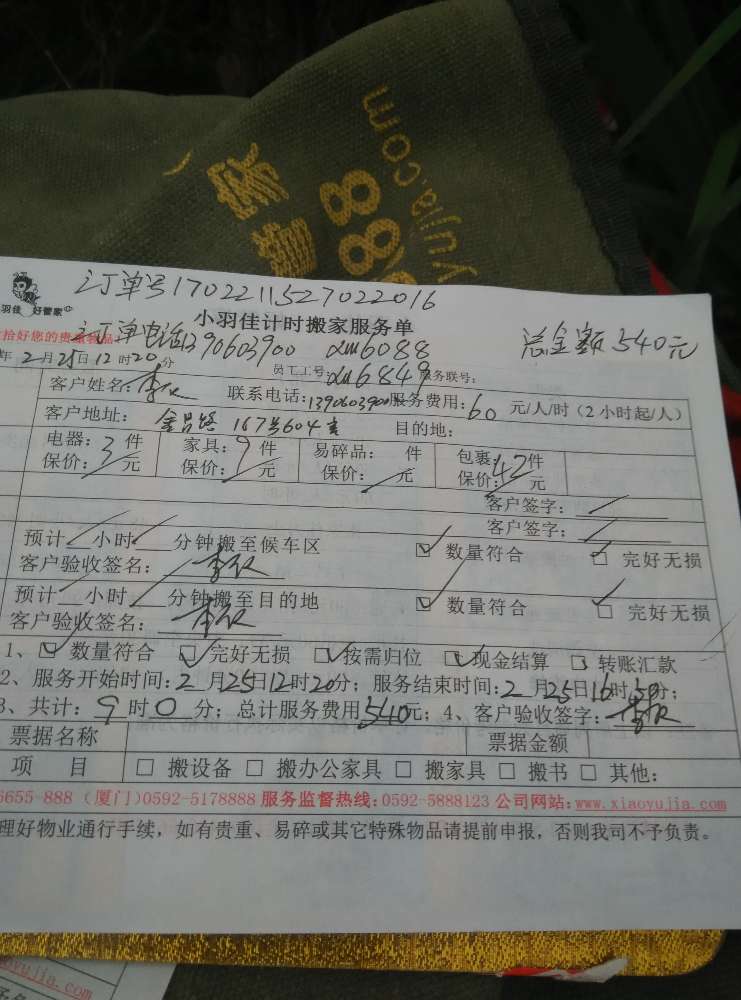 管家
88
yujia.com
订单号1702211527022016
羽佳 好管家
小羽佳计时搬家服务单
总金额540元
拾好您的贵重物品
订单电话1390603900 dm6088
年2月25日12时20分
员工工号:dm6849 服务联号:
客户姓名: 联系电话:1390603900 服务费用:60元/人/时(2小时起/人)
客户地址: 金昌路167号604室 目的地:
电器:3件 家具:9件 易碎品: 件 包裹:42件
保价: 元 保价: 元 保价: 元 保价: 元
客户签字:
客户签字:
预计 小时 分钟搬至候车区 ☑ 数量符合 ☑ 完好无损
客户验收签名:
预计 小时 分钟搬至目的地 ☑ 数量符合 ☑ 完好无损
客户验收签名:
1、☑ 数量符合 ☑ 完好无损 ☑ 按需归位 ☑ 现金结算 □ 转账汇款
2、服务开始时间:2月25日12时20分;服务结束时间:2月25日16时50分;
3、共计:9时0分;总计服务费用540元;4、客户验收签字:
票据名称 票据金额
项 目 □ 搬设备 □ 搬办公家具 □ 搬家具 □ 搬书 □ 其他:
6655-888 (厦门)0592-5178888 服务监督热线:0592-5888123 公司网站:www.xiaoyujia.com
理好物业通行手续,如有贵重、易碎或其它特殊物品请提前申报,否则我司不予负责。
aoyujia.com